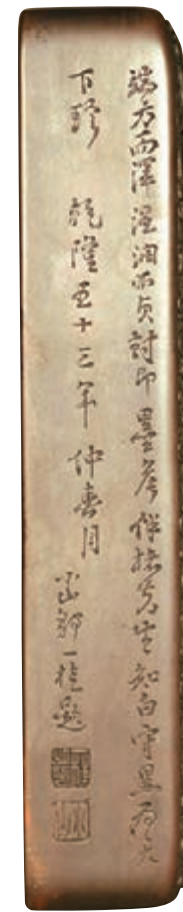 端方而澤溫潤而貞封即墨矦伴楮先生知白守黑為天
下珍 乾隆五十三年仲春月 小山鄒一桂題